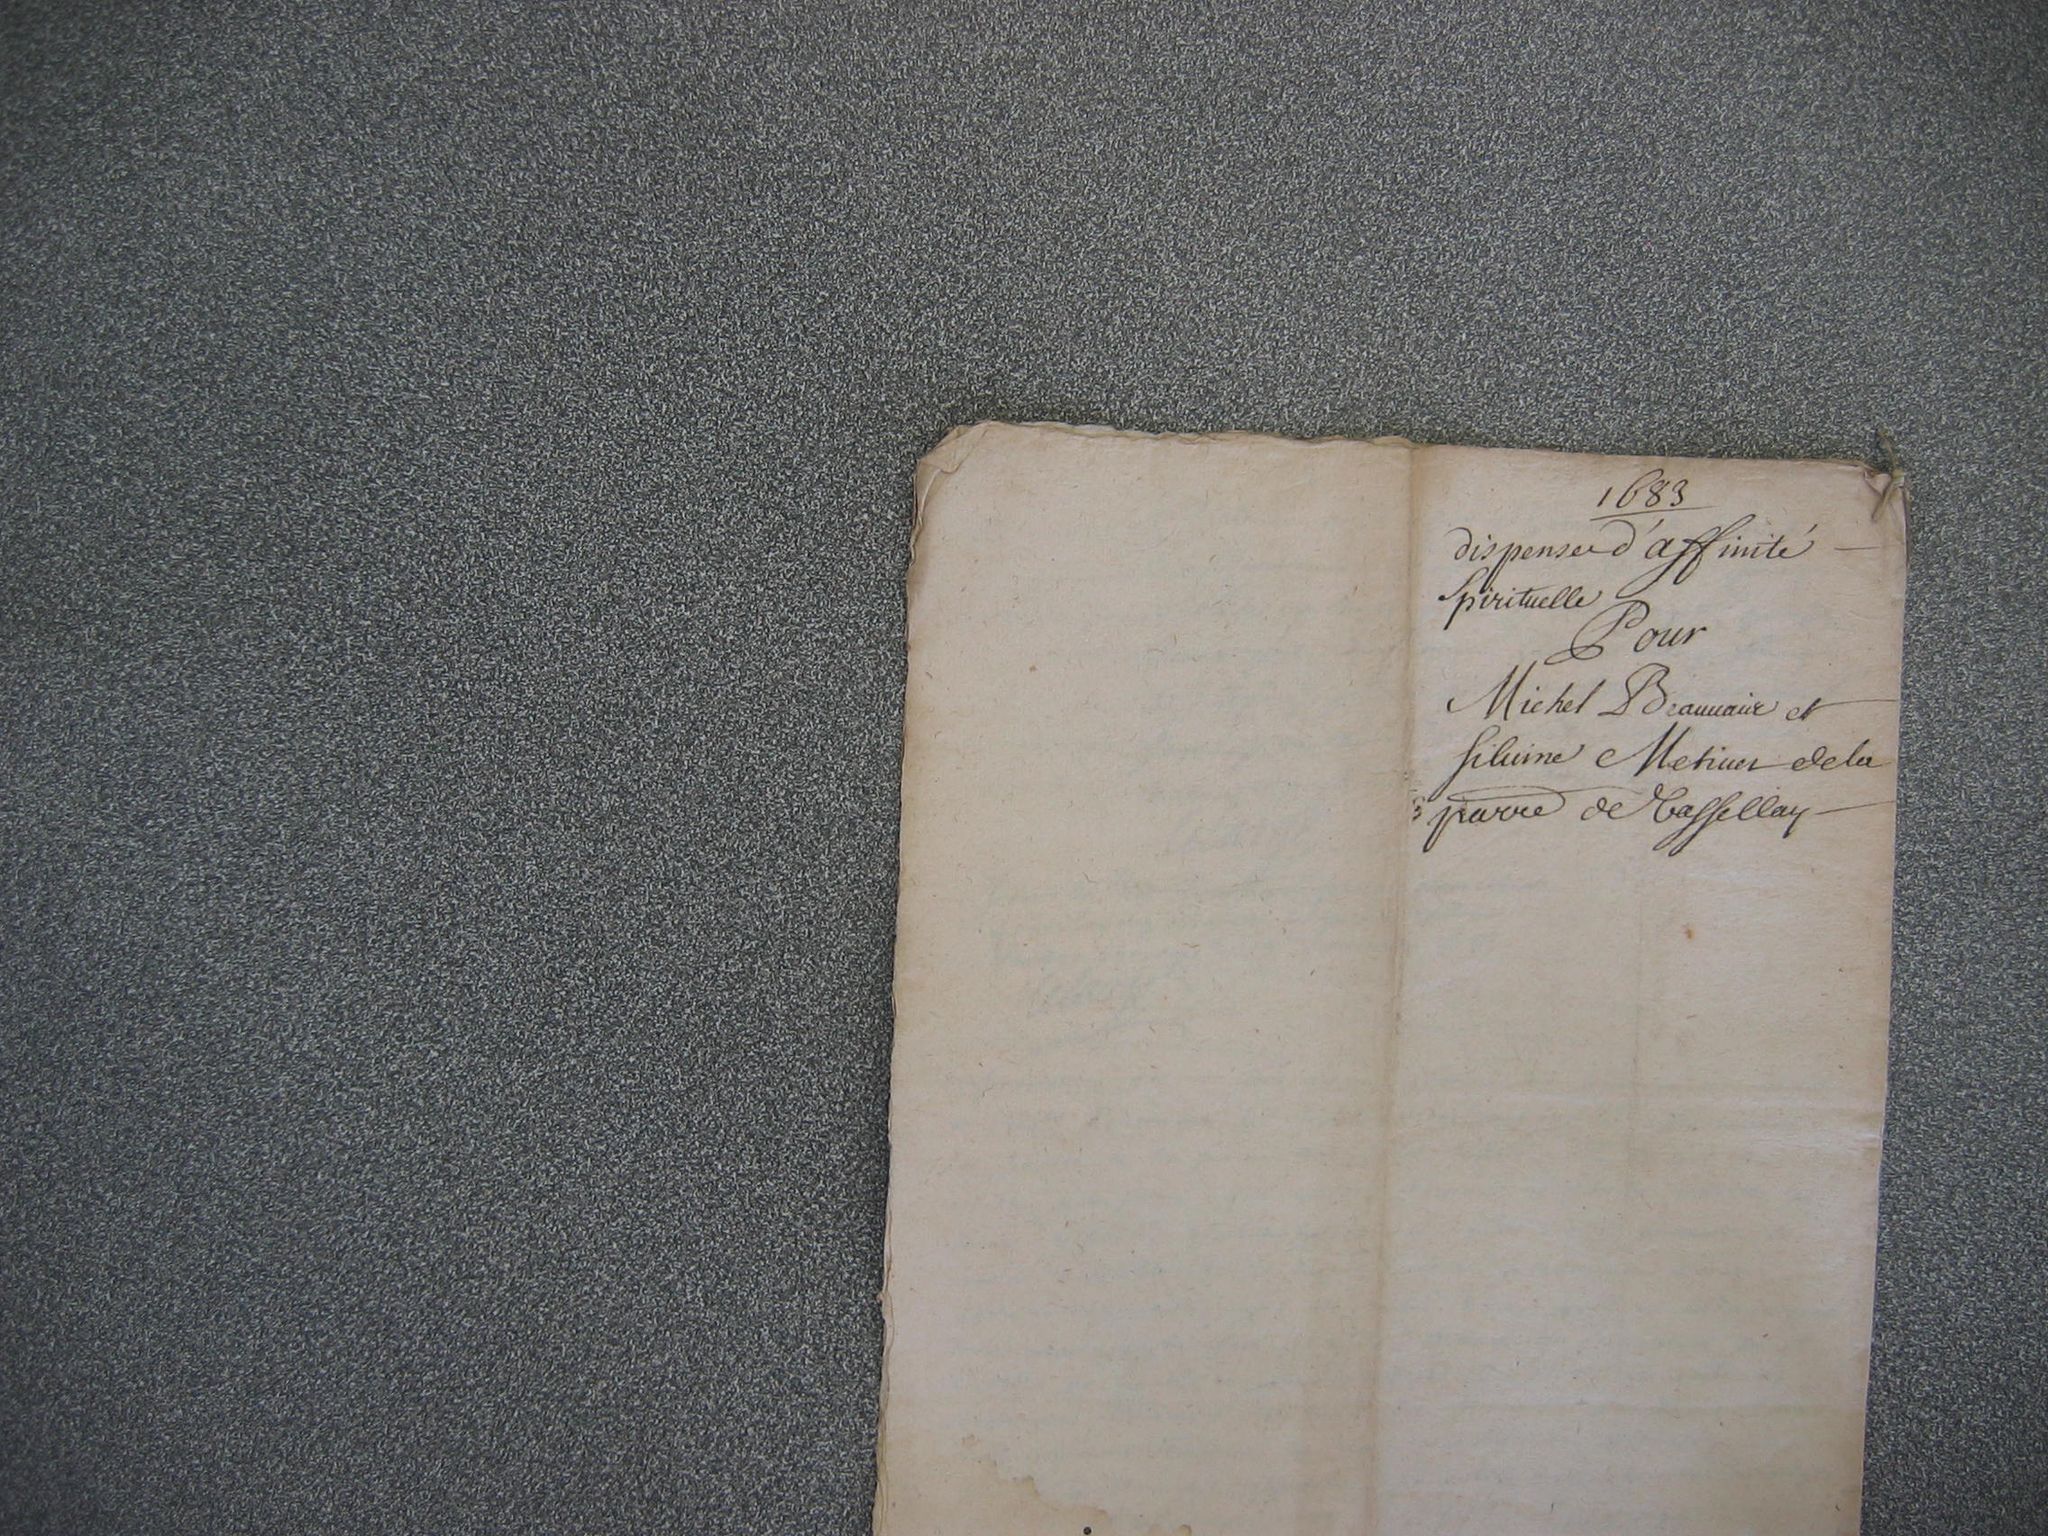 1683
dispense d'affinité
Spirituelle
Pour
Michel Beauvaix et
Silvine Metiver de la
de Vassellay